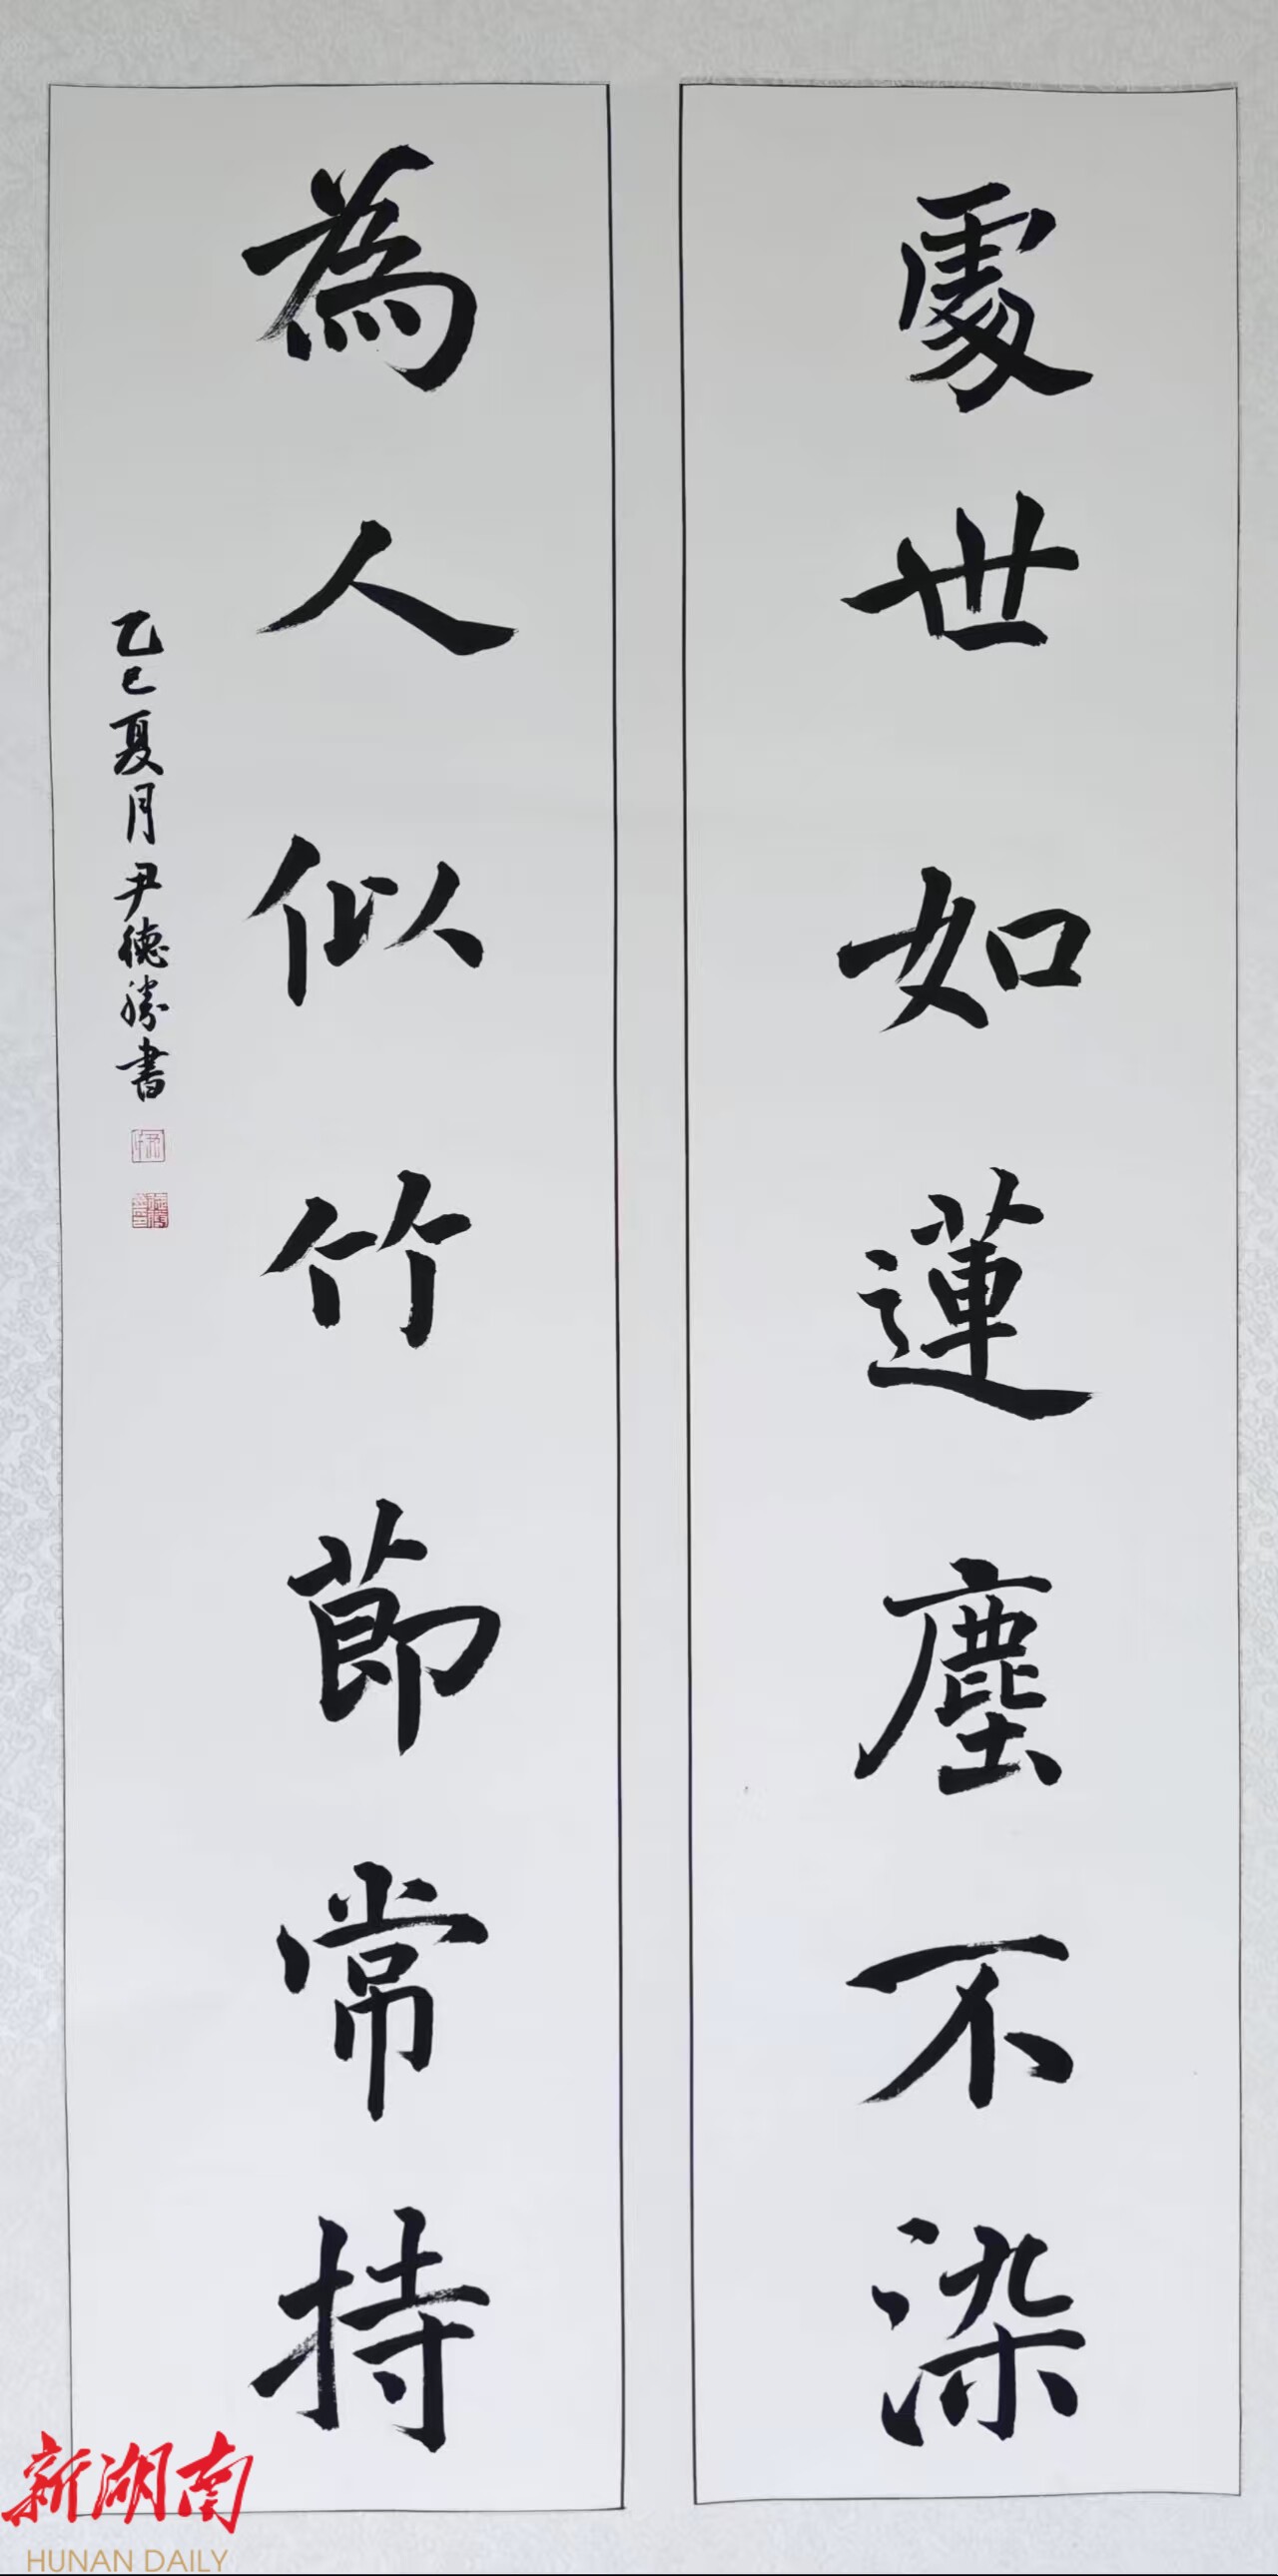 處世如蓮塵不染
為人似竹節常持
乙巳夏月尹德勝書
新湖南
HUNAN DAILY